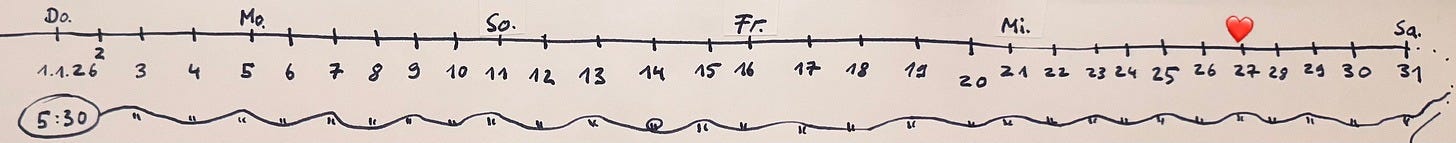 Do. Mo. So. Fr. Mi. ❤️ Sa.
1.1.26 2 3 4 5 6 7 8 9 10 11 12 13 14 15 16 17 18 19 20 21 22 23 24 25 26 27 28 29 30 31
5:30 " " " " " " " " " " " " " " " " " " " " " " " " " " " " "